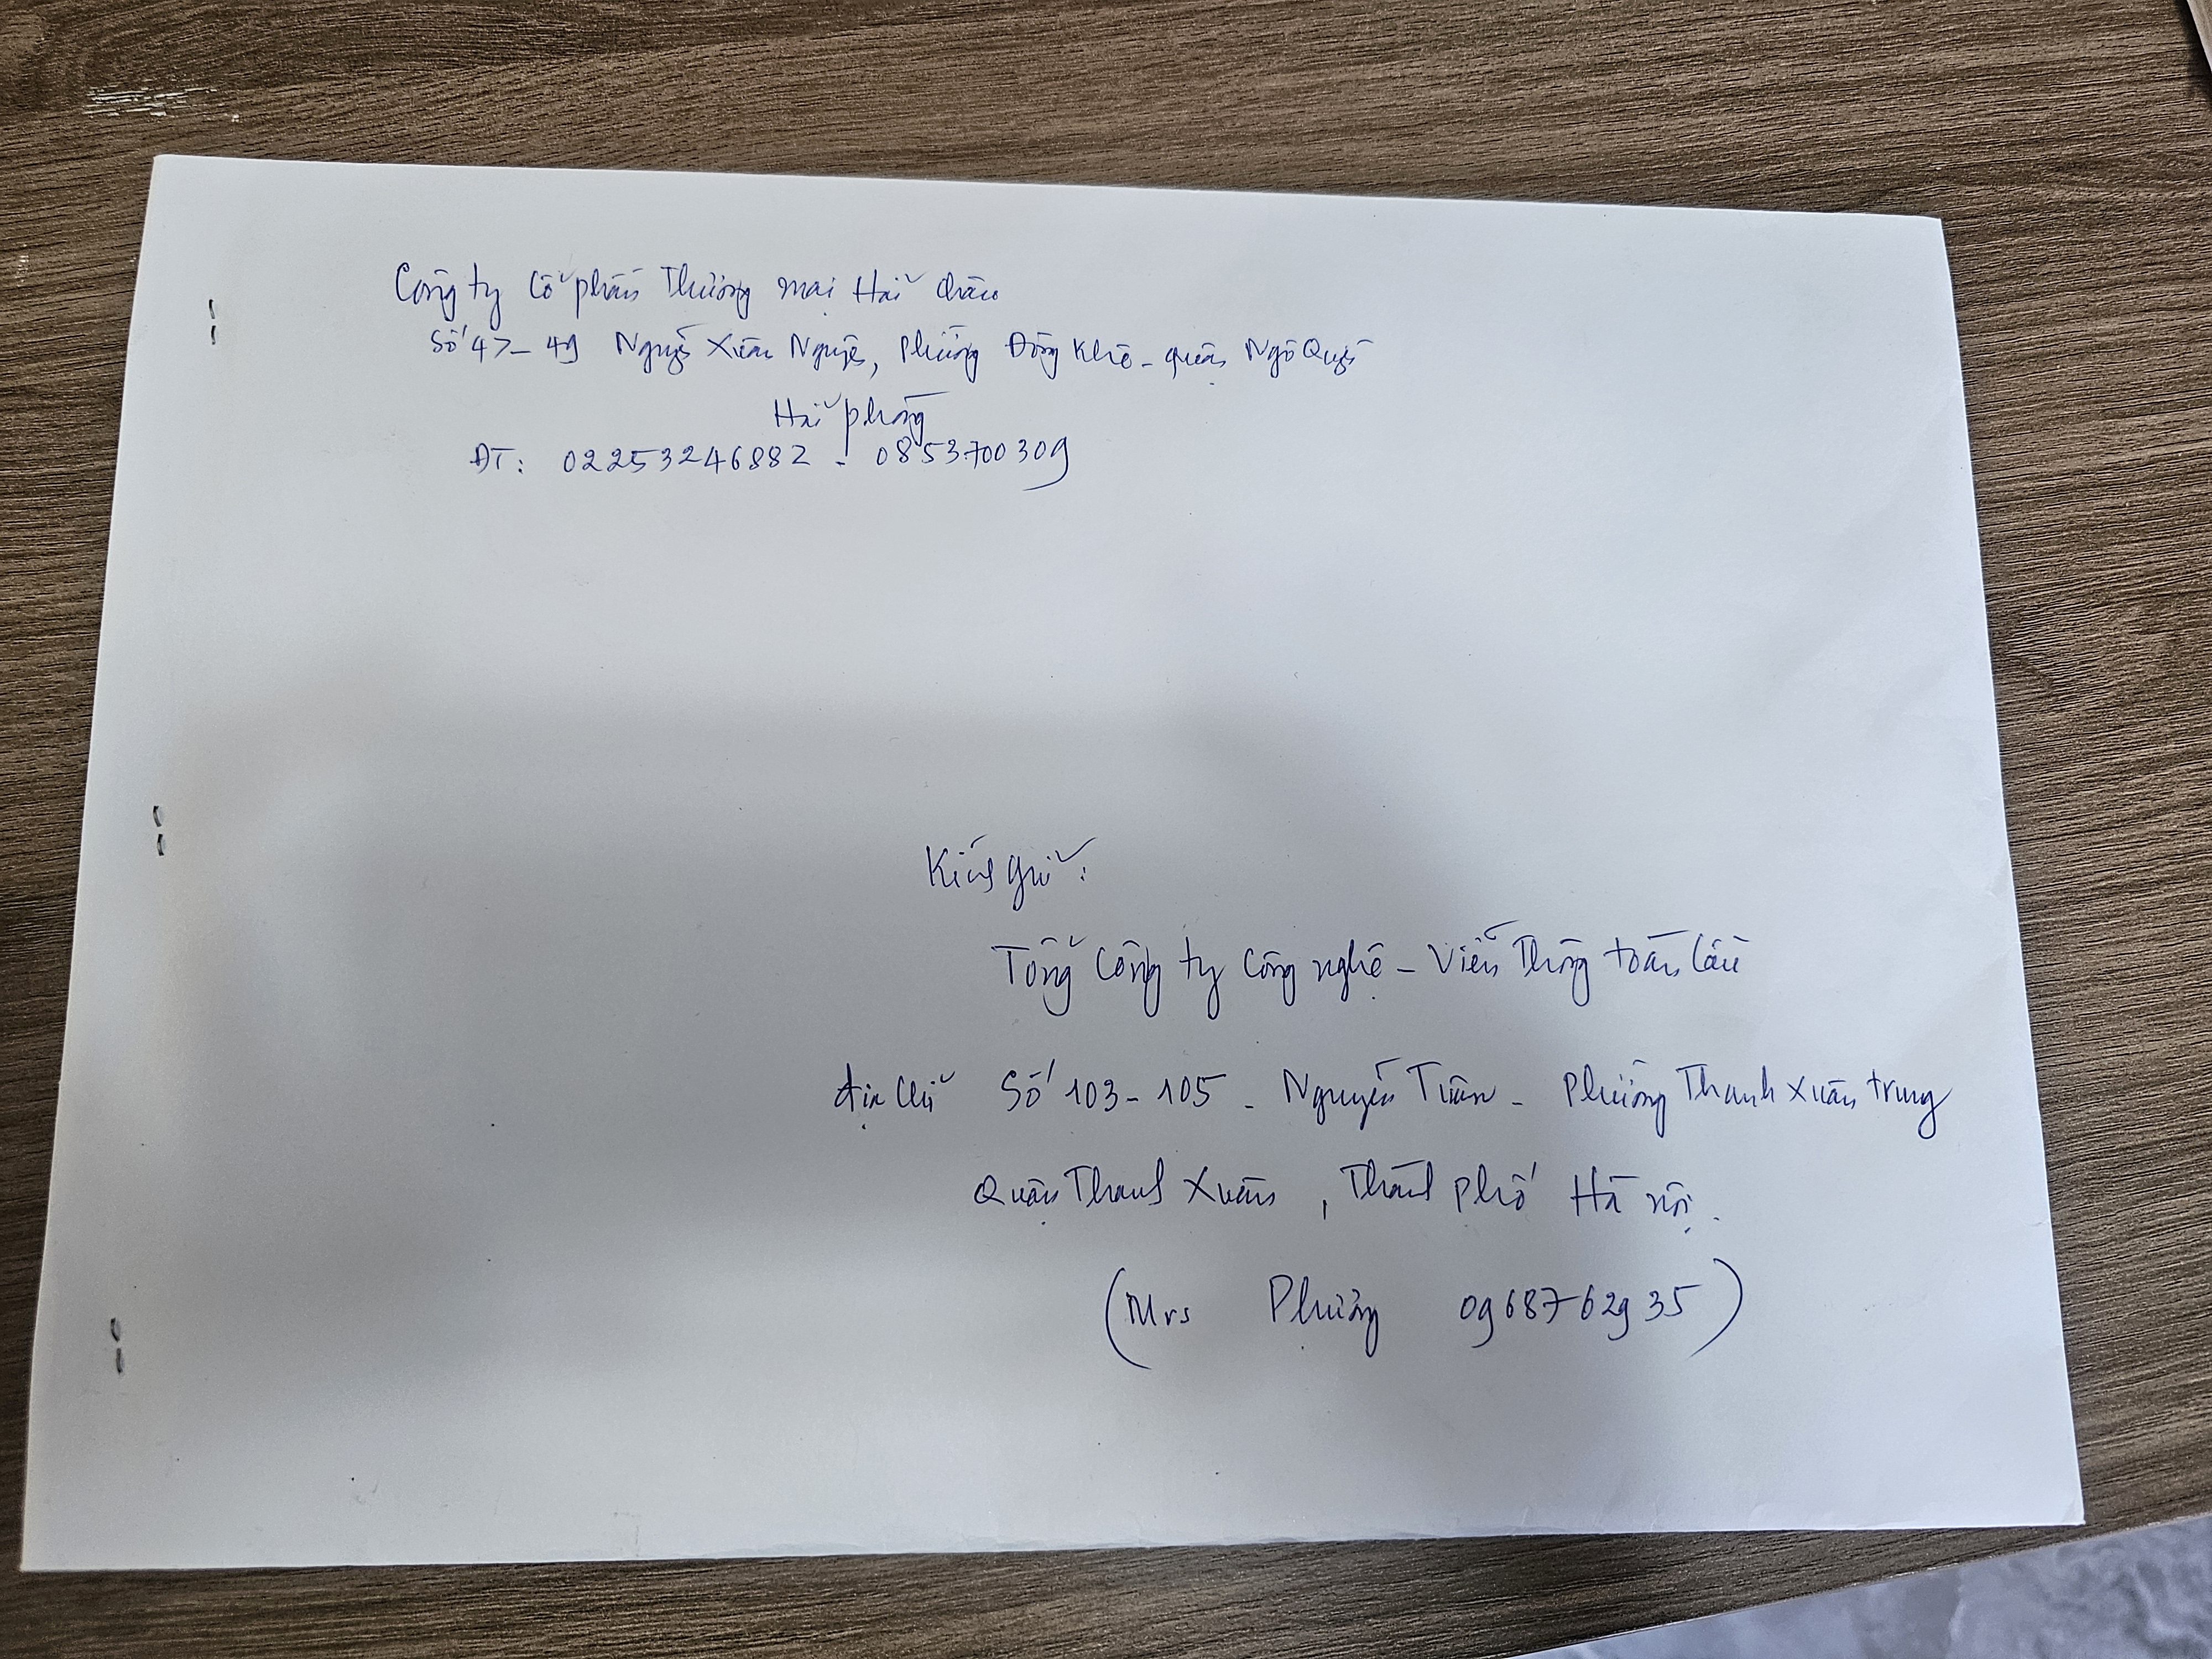 Công ty Cổ phần Thương mại Hải Châu
Số 47-49 Nguyễn Xuân Nguyên, Phường Đông Khê - quận Ngô Quyền
Hải phòng
ĐT: 02253246882 - 0853700309
Kính gửi:
Tổng Công ty Công nghệ - Viễn Thông toàn Cầu
địa chỉ Số 103-105 - Nguyễn Tuân - Phường Thanh Xuân trung
Quận Thanh Xuân, Thành phố Hà nội.
(Mrs Phượng 0968762935)